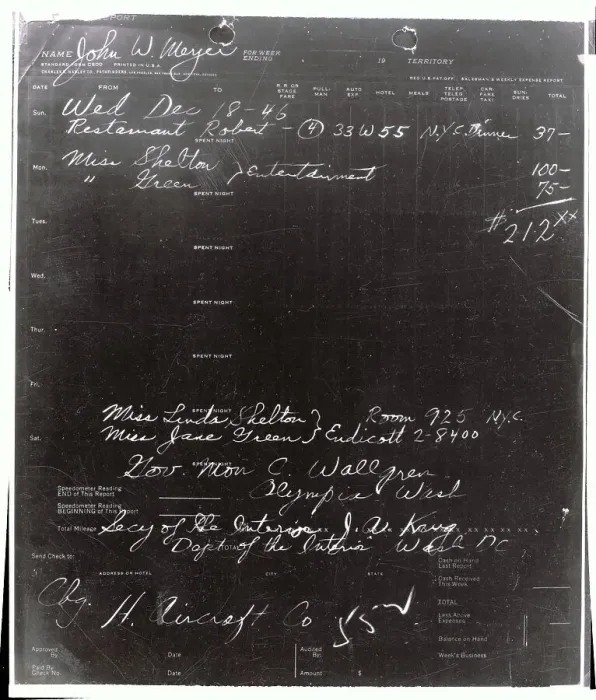 PORT
NAME John W. Meyer FOR WEEK ENDING 19 TERRITORY
STANDARD FORM C800 PRINTED IN U.S.A.
REG. U.S. PAT. OFF. SALESMAN'S WEEKLY EXPENSE REPORT
DATE FROM TO R.R. OR STAGE FARE PULLMAN AUTO EXP HOTEL MEALS TELEP. TELEG. POSTAGE CAR-FARE TAXI SUNDRIES TOTAL
Sun. Wed Dec 8-45
Restaurant Robert - (4) 33 W 55 N.Y.C. Dinner 37-
SPENT NIGHT
Mon. Miss Shelton } entertainment 100-
" Green 75-
SPENT NIGHT
$212xx
Tues.
SPENT NIGHT
Wed.
SPENT NIGHT
Thur.
SPENT NIGHT
Fri.
SPENT NIGHT
Miss Linda Shelton } Room 925 N.Y.C.
Sat. Miss Jane Green } Endicott 2-8400
SPENT NIGHT
Gov. Mon C. Wallgren
Speedometer Reading
END of This Report
Olympia Wash
Speedometer Reading
BEGINNING of This Report
Total Mileage Secy of the Interior J. A. Krug
Dept of the Interior Wash DC
TOTAL
Send Check to:
Cash on Hand
Last Report
ADDRESS OR HOTEL CITY STATE
Cash Received
This Week
Chg. H. Aircraft Co
TOTAL
Less Above
Expenses
Balance on Hand
Approved By Date Audited By: Week's Business
Paid By
Check No. Date Amount $